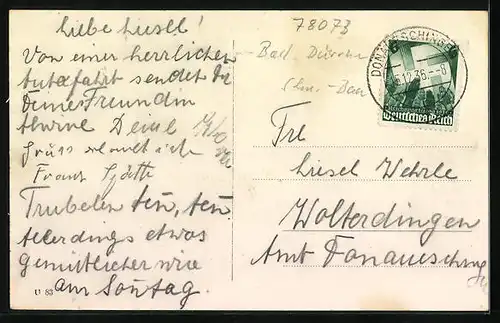 Liebe Liesel!
Von einer herrlichen
Autofahrt sendet Dir
Deine Freundin
Gruss erlaubt sich
Franz
Trubelen ten, ten
Allerdings etwas
Gemütlicher wie
am Sontag.
U 83
78073
Bad. Dürrheim
DONAUESCHINGEN
12.36.-8
6
Deutsches Reich
Frl
Liesel Wehrle
Wolterdingen
Amt Donaueschingen